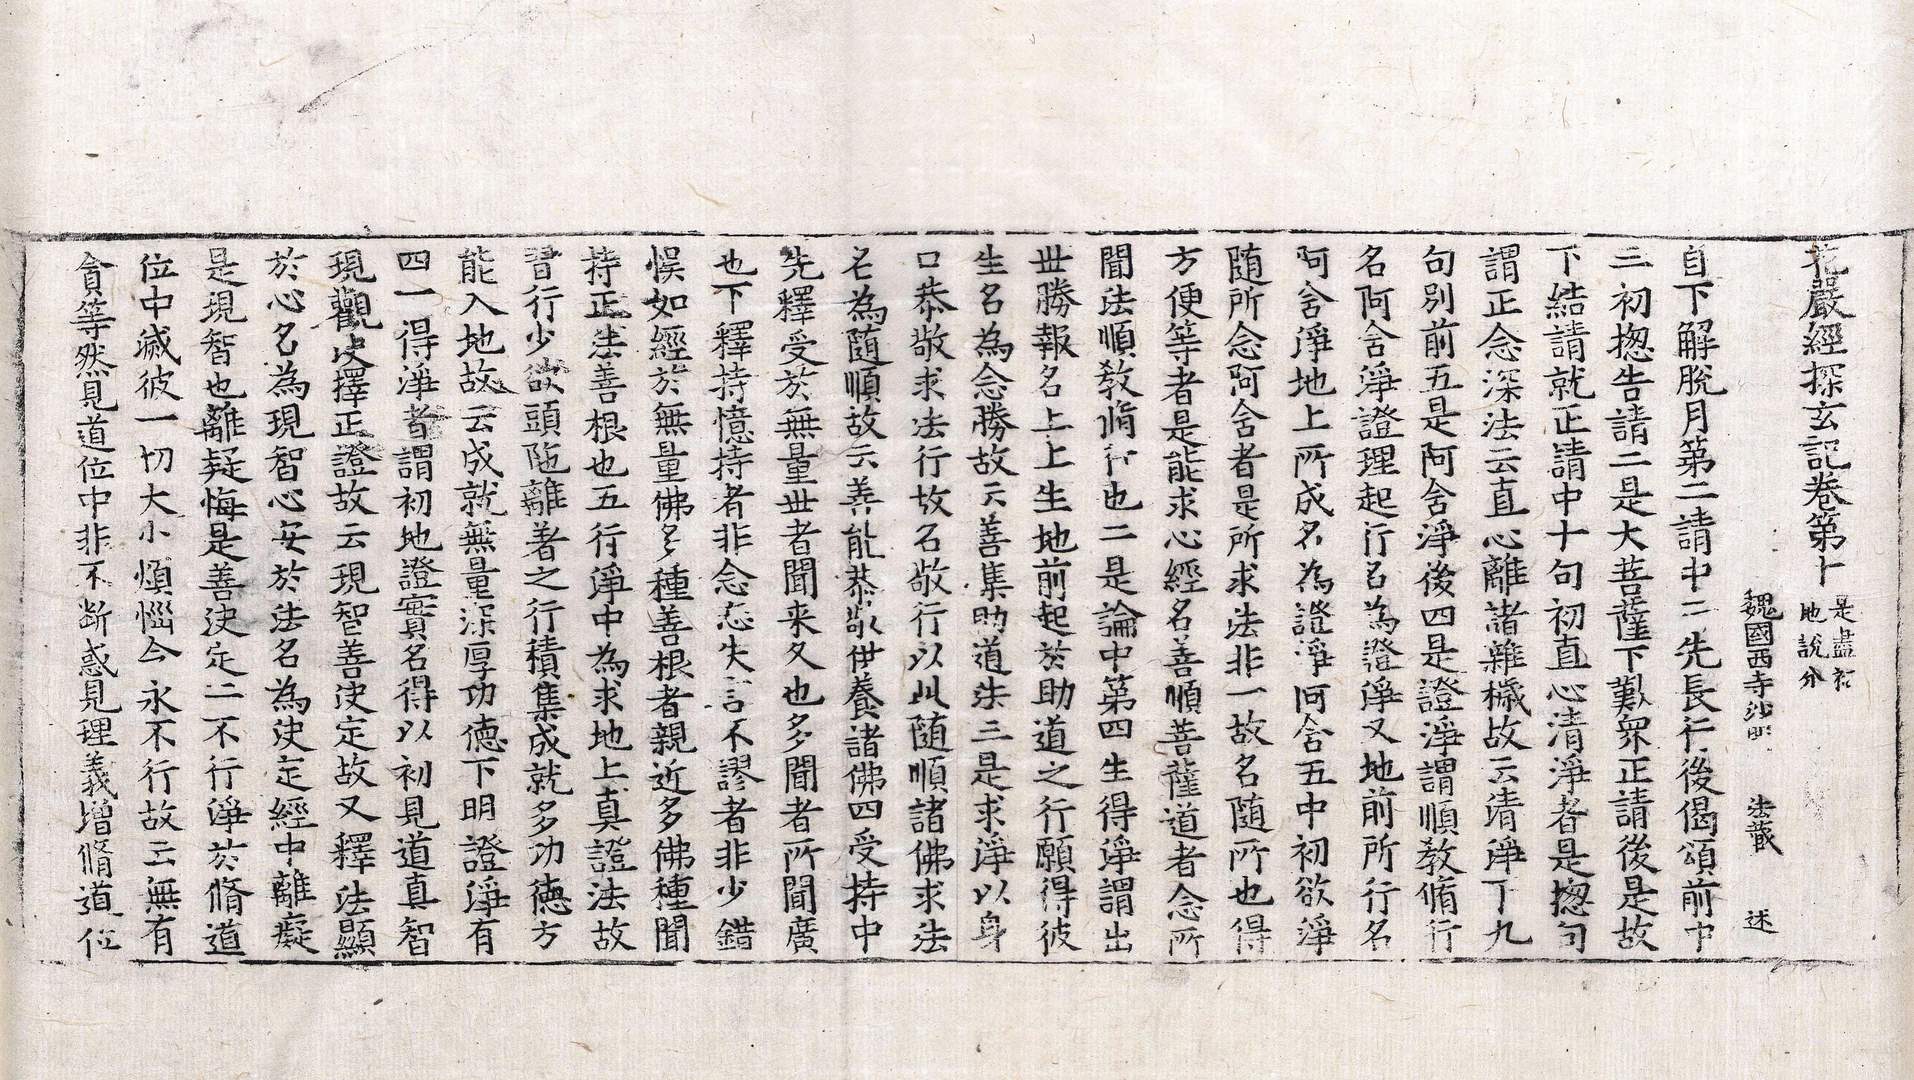 花嚴經探玄記卷第十 是盡初地說分
魏國西寺沙門 法藏 述
自下解脫月第二請中二先長行後偈頌前中
三初揔告請二是大菩薩下歎衆正請後是故
下結請就正請中十句初直心清淨者是揔句
謂正念深法云直心離諸雜穢故云清淨下九
句別前五是阿舍淨後四是證淨謂順教脩行
名阿舍淨證理起行名為證淨又地前所行名
阿舍淨地上所成名為證淨阿舍五中初欲淨
随所念阿舍者是所求法非一故名随所也得
方便等者是能求心經名善順菩薩道者念所
聞法順教脩行也二是論中第四生得淨謂出
世勝報名上上生地前起於助道之行願得彼
生名為念勝故云善集助道法三是求淨以身
口恭敬求法行故名敬行以此随順諸佛求法
名為随順故云善能恭敬供養諸佛四受持中
先釋受於無量世者聞来久也多聞者所聞廣
也下釋持憶持者非念忘失言不謬者非少錯
悞如經於無量佛多種善根者親近多佛種聞
持正法善根也五行淨中為求地上真證法故
習行少欲頭陁離著之行積集成就多功德方
能入地故云成就無量深厚功德下明證淨有
四一得淨者謂初地證實名得以初見道真智
現觀決擇正證故云現智善決定故又釋法顯
於心名為現智心安於法名為決定經中離癡
是現智也離疑悔是善決定二不行淨於脩道
位中滅彼一切大小煩惱令永不行故云無有
貪等然見道位中非不断惑見理義增脩道位